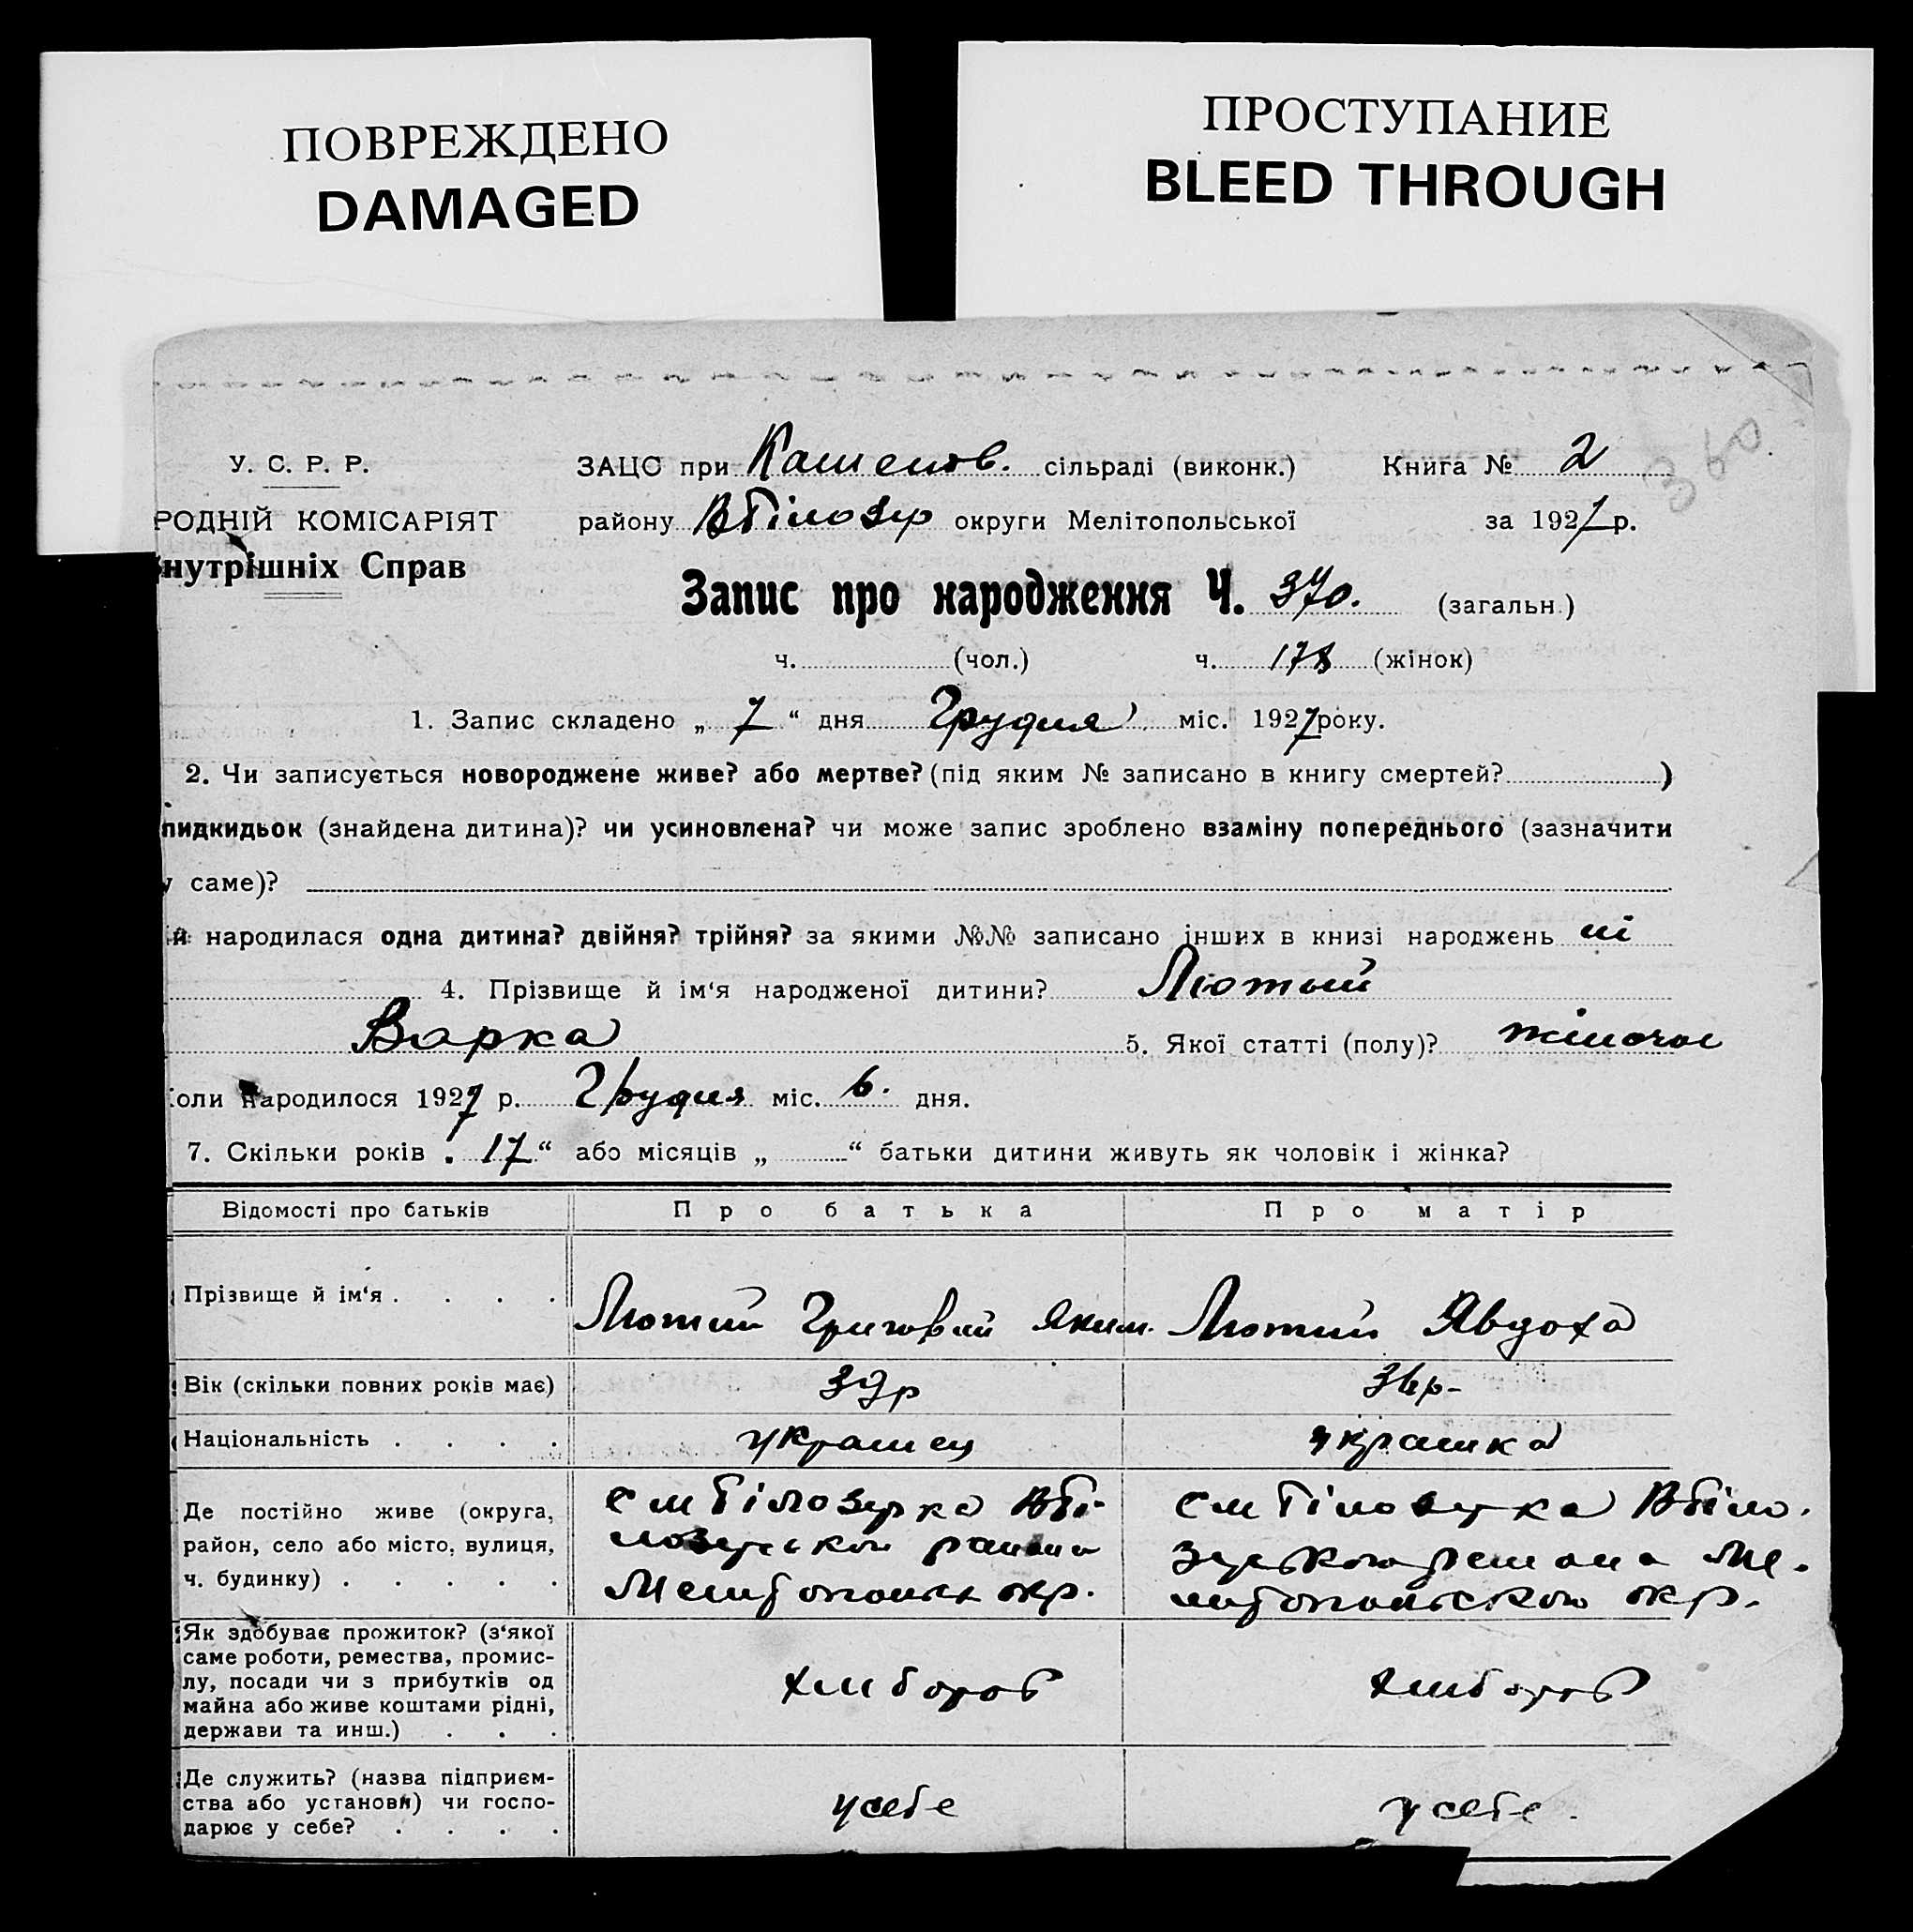 ПОВРЕЖДЕНО
DAMAGED
ПРОСТУПАНИЕ
BLEED THROUGH
360
У. С. Р. Р.
ЗАЦС при сільраді (виконк.) Книга № 2
РОДНІЙ КОМІСАРІЯТ
району ВБілозер округи Мелітопольської за 1927 р.
нутрішніх Справ
Запис про народження Ч. 370. (загальн.)
ч. (чол.) ч. 178 (жінок)
1. Запис складено „ 7 “ дня Грудня міс. 1927 року.
2. Чи записується новороджене живе? або мертве? (під яким № записано в книгу смертей? )
пидкидьок (знайдена дитина)? чи усиновлена? чи може запис зроблено взаміну попереднього (зазначити
у саме)?
й народилася одна дитина? двійня? трійня? за якими №№ записано інших в книзі народжень ні
4. Прізвище й ім‘я народженої дитини? Лютий
Варка 5. Якої статті (полу)? жіночої
оли народилося 1927 р. Грудня міс. 6. дня.
7. Скільки років „ 17 “ або місяців „ “ батьки дитини живуть як чоловік і жінка?
Відомості про батьків Про батька Про матір
Прізвище й ім‘я . . . . Лютий Григорій Яким. Лютий Явдоха
Вік (скільки повних років має) 39р 36р-
Національність . . . . украинец украинка
Де постійно живе (округа, район, село або місто, вулиця, ч. будинку) . . . . .
см Білозерка ВБі-
лозерской района
Мелітопольск окр.
см Білозерка ВБіло.
зерского района Ме-
литопольскою окр.
Як здобуває прожиток? (з‘якої саме роботи, ремества, промис-
лу, посади чи з прибутків од
майна або живе коштами рідні,
держави та инш.) . . .
хлібороб хлібороб
Де служить? (назва підприєм-
ства або установи) чи госпо-
дарює у себе? . . . .
у себе у себе.